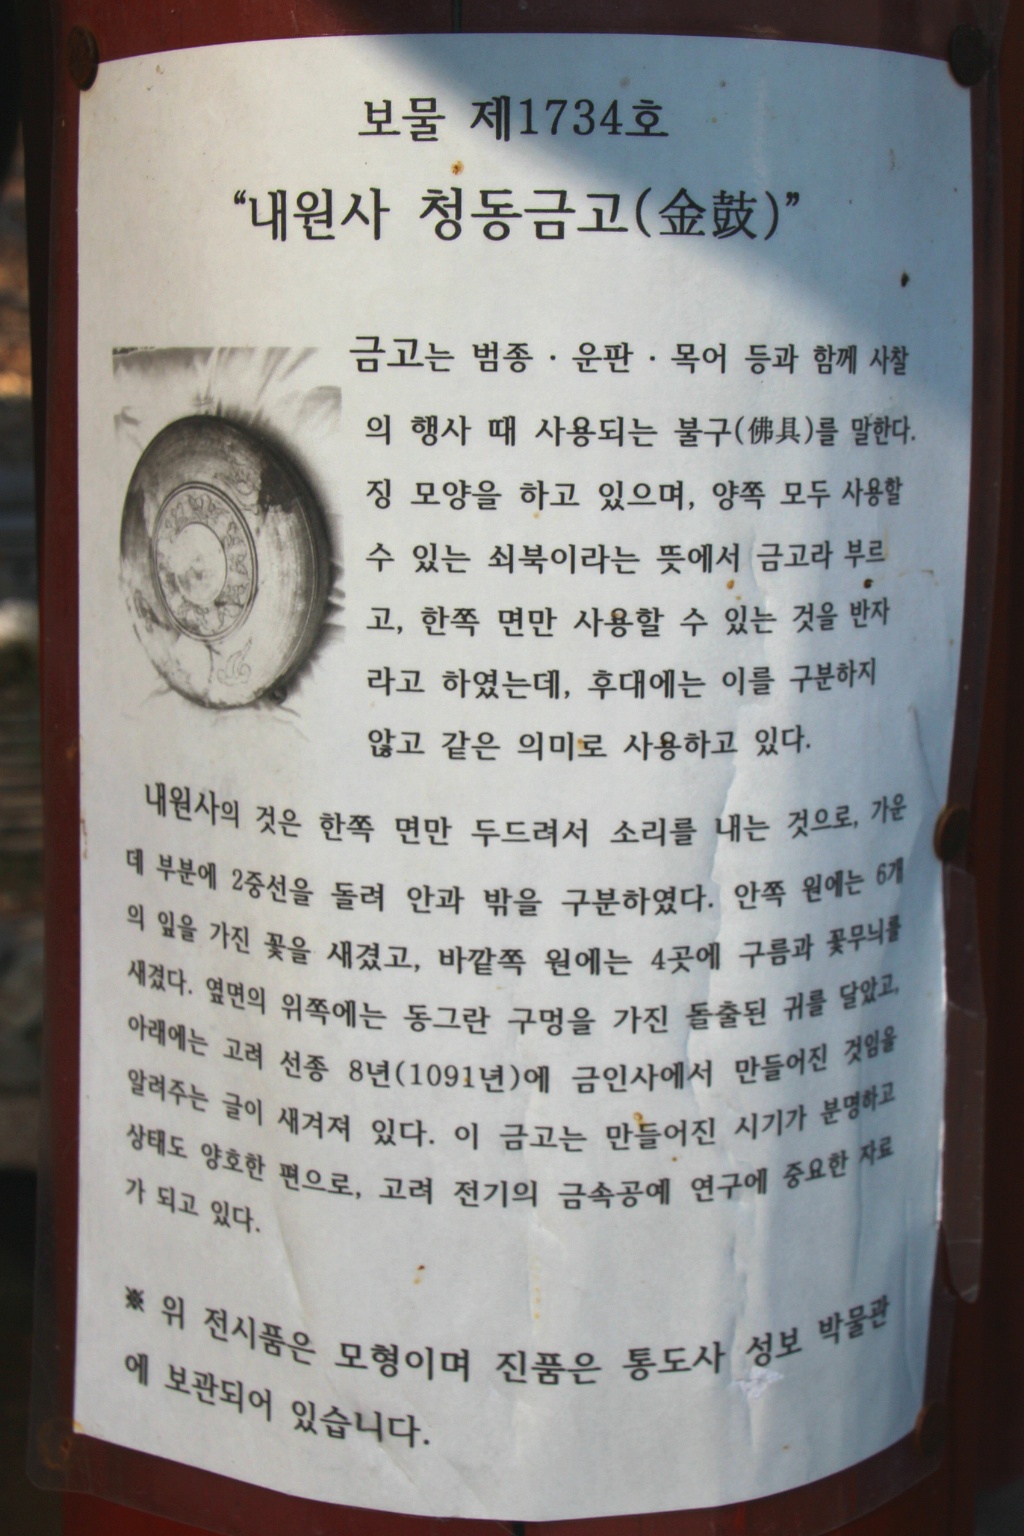 보물 제1734호
“내원사 청동금고(金鼓)”
금고는 범종 · 운판 · 목어 등과 함께 사찰
의 행사 때 사용되는 불구(佛具)를 말한다.
징 모양을 하고 있으며, 양쪽 모두 사용할
수 있는 쇠북이라는 뜻에서 금고라 부르
고, 한쪽 면만 사용할 수 있는 것을 반자
라고 하였는데, 후대에는 이를 구분하지
않고 같은 의미로 사용하고 있다.
내원사의 것은 한쪽 면만 두드려서 소리를 내는 것으로, 가운
데 부분에 2중선을 돌려 안과 밖을 구분하였다. 안쪽 원에는 6개
의 잎을 가진 꽃을 새겼고, 바깥쪽 원에는 4곳에 구름과 꽃무늬를
새겼다. 옆면의 위쪽에는 동그란 구멍을 가진 돌출된 귀를 달았고,
아래에는 고려 선종 8년(1091년)에 금인사에서 만들어진 것임을
알려주는 글이 새겨져 있다. 이 금고는 만들어진 시기가 분명하고
상태도 양호한 편으로, 고려 전기의 금속공예 연구에 중요한 자료
가 되고 있다.
※ 위 전시품은 모형이며 진품은 통도사 성보 박물관
에 보관되어 있습니다.